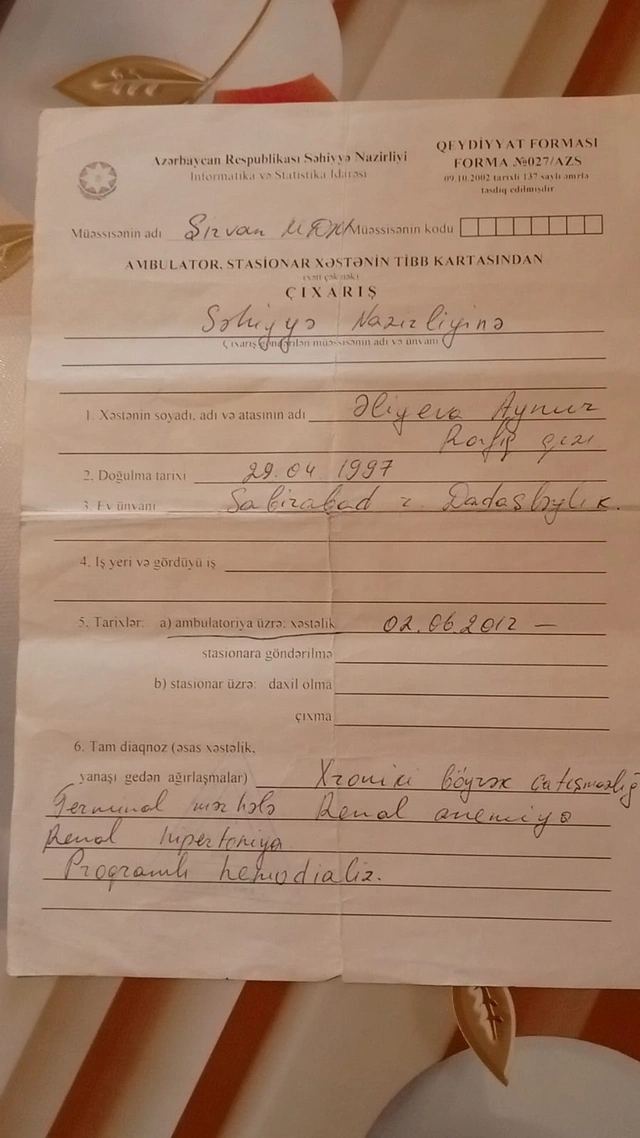 Azərbaycan Respublikası Səhiyyə Nazirliyi
İnformatika və Statistika İdarəsi
QEYDİYYAT FORMASI
FORMA №027/AZS
09.10.2002 tarixli 137 saylı əmrlə
təsdiq edilmişdir
Müəssisənin adı Şirvan Müəssisənin kodu
AMBULATOR, STASİONAR XƏSTƏNİN TİBB KARTASINDAN
ÇIXARIŞ
Səhiyyə Nazirliyinə
Çıxarış göndərilən müəssisənin adı və ünvanı
1. Xəstənin soyadı, adı və atasının adı Əliyeva Aynur
Rafiq qızı
2. Doğulma tarixi 29.04 1997
3. Ev ünvanı Sabirabad r. Dadaşbəylik.
4. İş yeri və gördüyü iş
5. Tarixlər: a) ambulatoriya üzrə: xəstəlik 02.06.2012 —
stasionara göndərilmə
b) stasionar üzrə: daxil olma
çıxma
6. Tam diaqnoz (əsas xəstəlik,
yanaşı gedən ağırlaşmalar) Xroniki böyrək çatışmazlığ
Terminal mərhələ Renal anemiya
Renal hipertoniya
Proqramlı hemodializ.